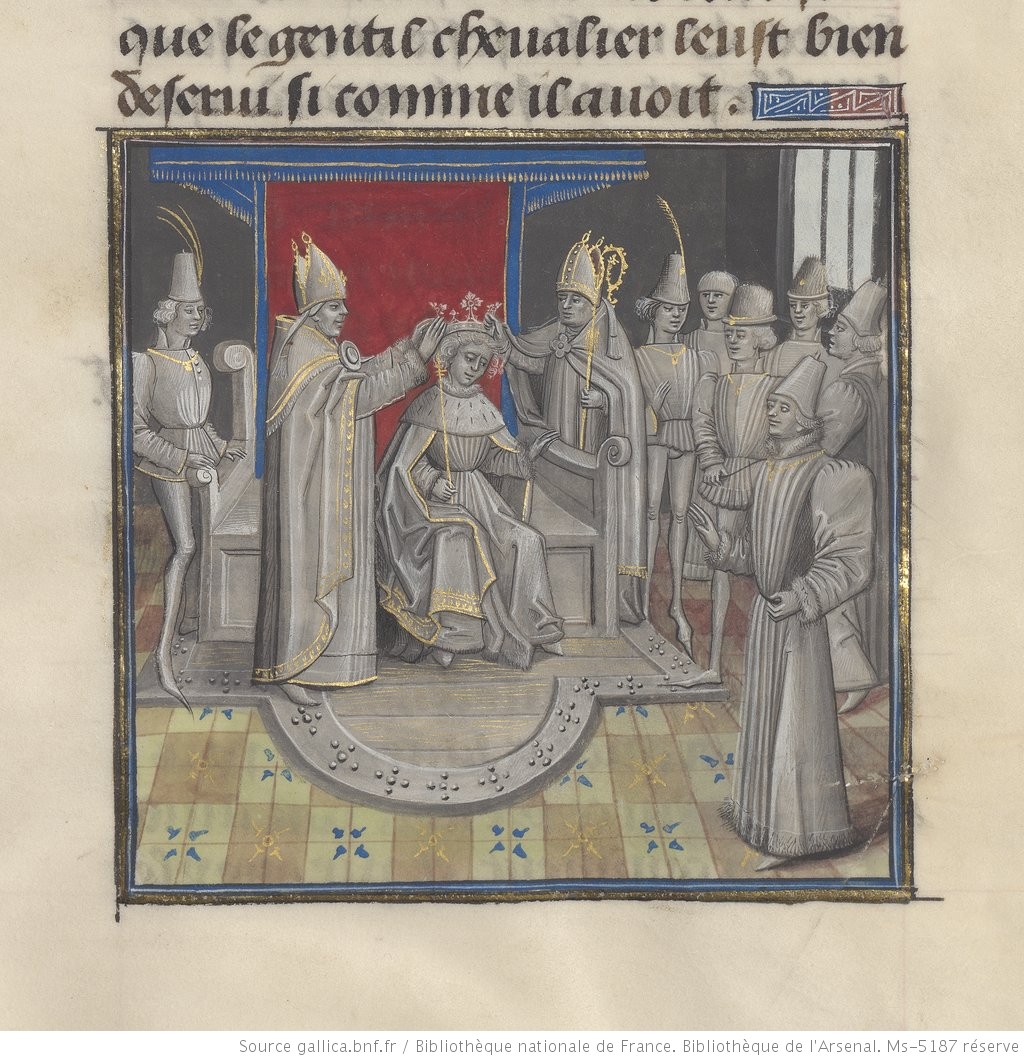 que le gentil cheualier leust bien
deserui si comme il auoit.
Source gallica.bnf.fr / Bibliothèque nationale de France. Bibliothèque de l'Arsenal. Ms-5187 réserve